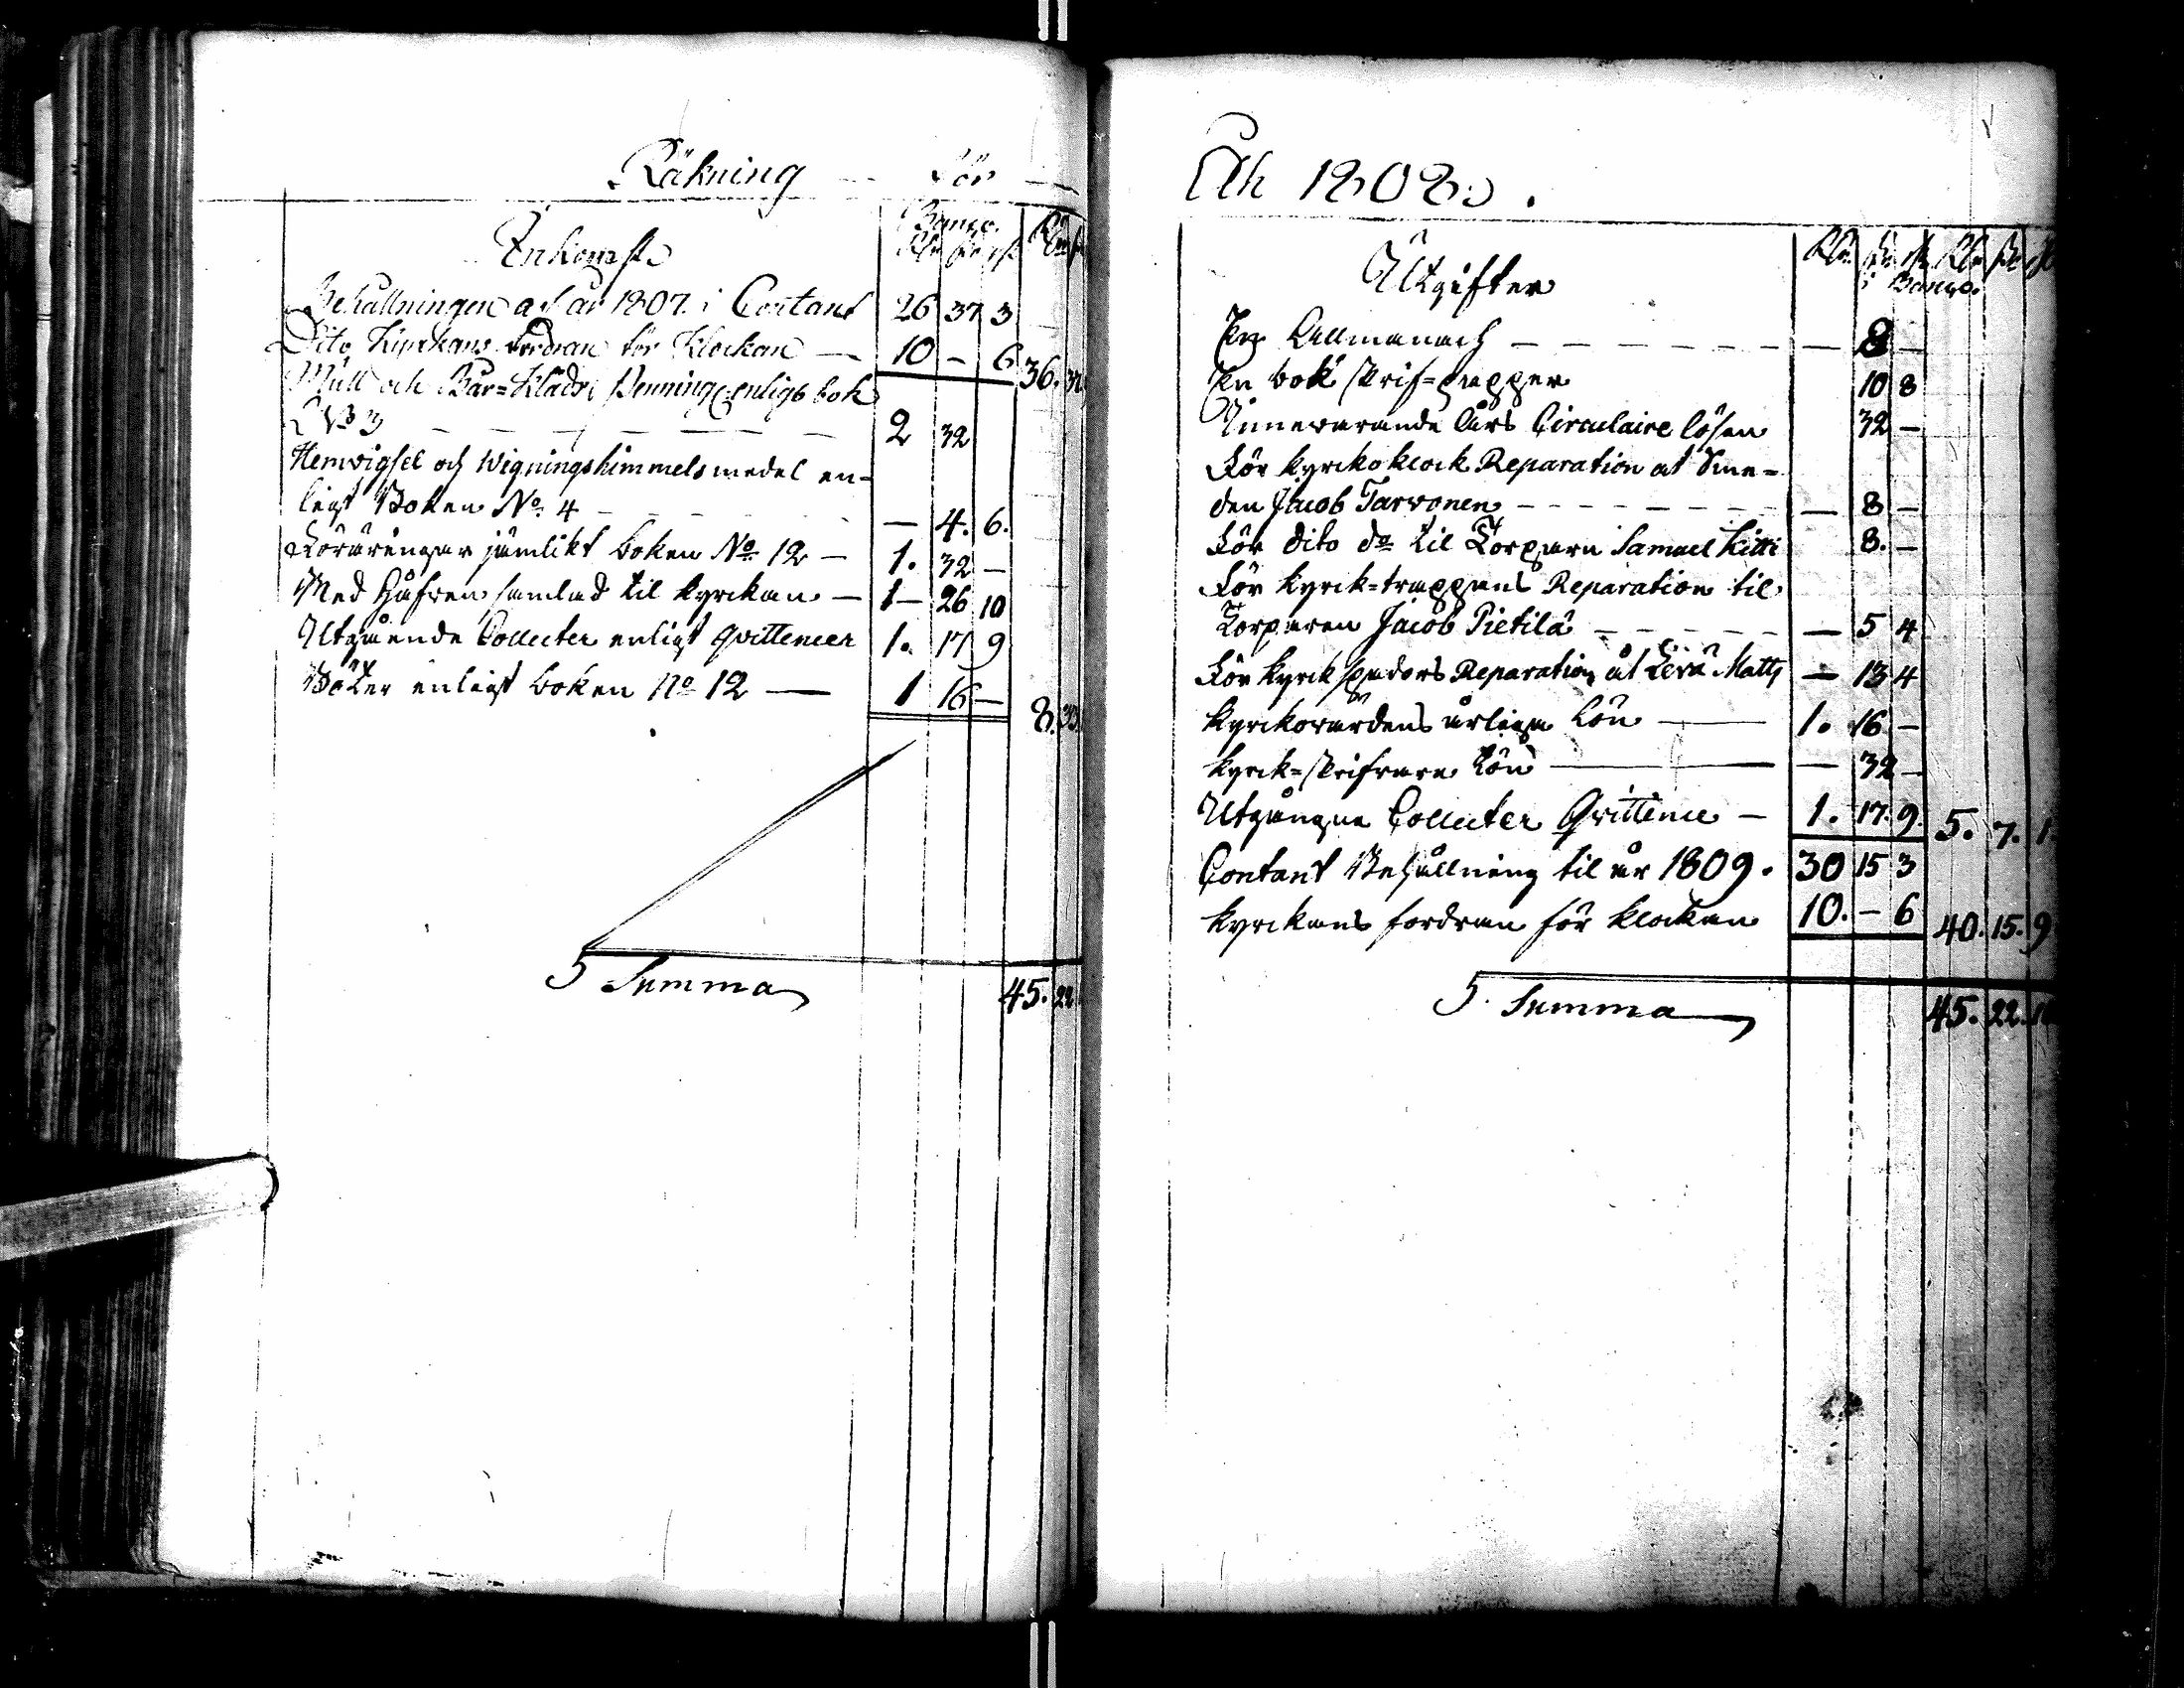 Räkning för
Inkomst
Banco.
Behållningen af år 1807. i Contant 26 37 3
Dito Kyrkans fordran för Klockan — 10 — 6 36. 37
Mull och Bår=Kläds Penning. enligt bok
N 3 — 2 32
Hemvigsel och Wigningshimmels medel en-
ligt Boken No. 4 — 4. 6.
Föräringar jämlikt boken No 12 — 1. 32 —
Med Håfven samlad til kyrckan — 1 — 26 10
Utgående Collecter enligt qvittencer 1. 17 9
Böter enligt boken No 12 — 1 16 — 8. 33
Summa 45. 22
Åhr 1808.
Utgifter
Rdr. sk. rst. Rdr sk
Banco.
En Allmanach — 8 —
En bok skrif=papper 10 8
Innevarande Års Circulaire lösen 32 —
För kyrkoklock Reparation at Sme=
den Jacob Tarvonen — 8 —
För dito do til Torparn Samuel Kitti 8. —
För kyrck=trappans Reparation til
Torparen Jacob Pietilä — 5 4
För kyrck spadars Reparation åt Levä Matts — 13 4
Kyrckovärdens årliga Lön — 1. 16 —
Kyrck=skrifvare Lön — 32 —
Utgångna Collecter Qvittence — 1. 17. 9. 5. 7. 1
Contant Behållning til år 1809. 30 15 3
Kyrckans fordran för klockan 10. — 6 40. 15. 9
Summa 45. 22. 10